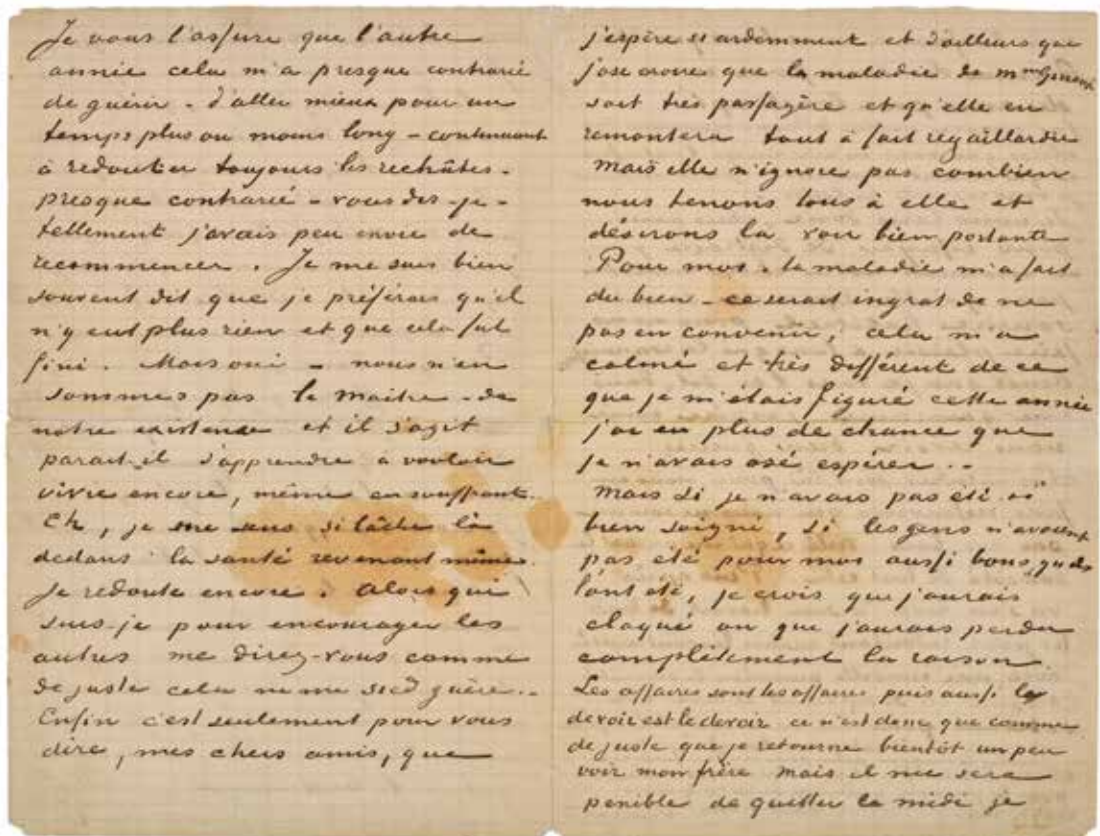 Je vous l'assure que l'autre
année cela m'a presque contrarié
de guérir - d'aller mieux pour un
temps plus ou moins long - continuant
à redouter toujours les rechûtes -
presque contrarié - vous dis-je -
tellement j'avais peu envie de
recommencer. Je me suis bien
souvent dit que je préférais qu'il
n'y eut plus rien et que cela fut
fini. Mais oui - nous n'en
sommes pas le maitre - de
notre existence et il s'agit
parait-il d'apprendre à vouloir
vivre encore, même en souffrant.
Eh, je me sens si lâche là
dedans la santé revenant même.
Je redoute encore. Alors qui
suis-je pour encourager les
autres me direz-vous comme
de juste cela ne me sied guère..
Enfin c'est seulement pour vous
dire, mes chers amis, que
j'espère si ardemment et d'ailleurs que
j'ose croire que la maladie de Mme
soit très passagère et qu'elle en
remontera tout à fait regaillardie
mais elle n'ignore pas combien
nous tenons tous à elle et
désirons la voir bien portante
Pour moi - la maladie m'a fait
du bien - ce serait ingrat de ne
pas en convenir, cela m'a
calmé et très différent de ce
que je m'étais figuré cette année
j'ai eu plus de chance que
je n'avais osé espérer..
Mais si je n'avais pas été si
bien soigné, si les gens n'avaient
pas été pour moi aussi bons qu'ils
l'ont été, je crois que j'aurais
claqué ou que j'aurais perdu
complètement la raison.
Les affaires sont les affaires puis aussi le
devoir est le devoir ce n'est donc que comme
de juste que je retourne bientôt un peu
voir mon frère mais il me sera
penible de quitter le midi je